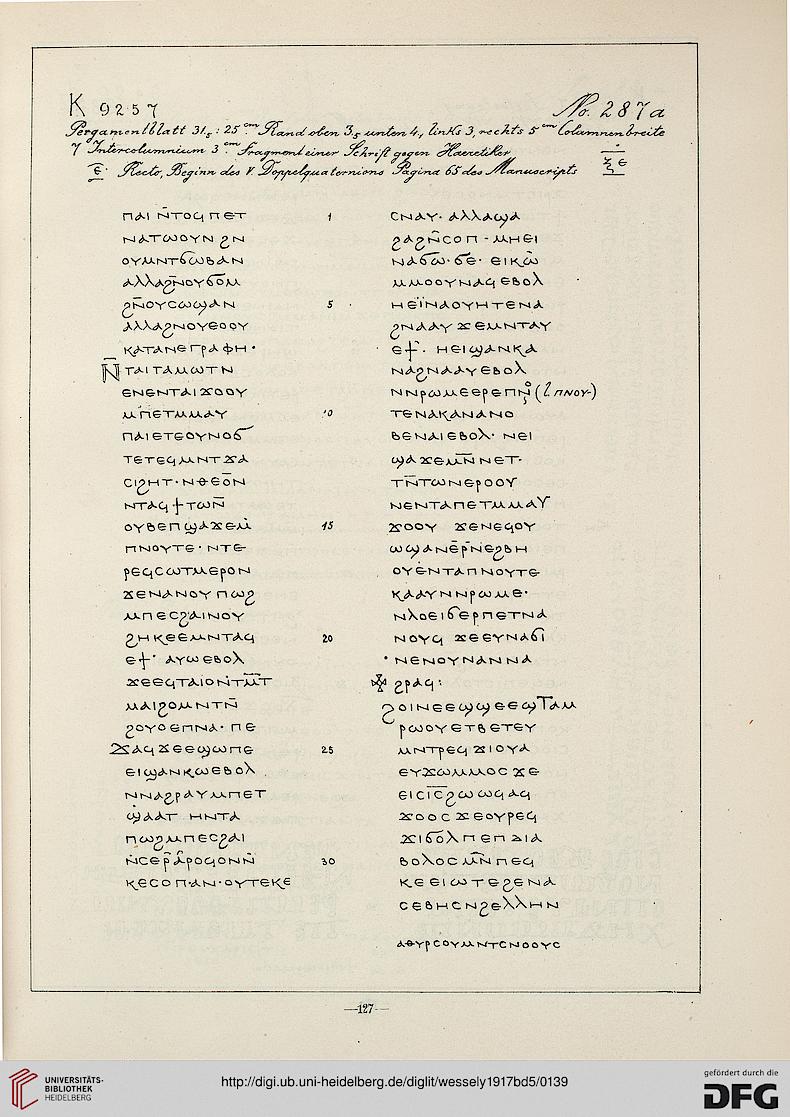 K 9257
No. 287a
Pergamentblatt 31,5 : 25 cm Rand oben 3,5 unten 4, links 3, rechts 5 cm Columnenbreite
7 Intercolumnium 3 cm. Fragment einer Schrift gegen Haeretiker
ⲉ̅ Recto, Beginn des V. Doppelquaternions Pagina 65 des Manuscripts ⲝⲉ
ⲡⲁⲓ ⲛ̅ⲧⲟϥ ⲡⲉⲧ
ⲛⲁⲧⲱⲟⲩⲛ ϩⲛ
ⲟⲩⲙⲛⲧϭⲱⲃⲁⲛ
ⲁⲗⲗⲁϩⲛ̅ⲟⲩϭⲟⲙ
5
ϩⲛ̅ⲟⲩⲥⲱϣⲁⲛ
ⲁⲗⲗⲁϩⲛⲟⲩⲉⲟⲟⲩ
ⲕⲁⲧⲁⲛⲉⲅⲣⲁⲫⲏ·
ⲛ̅ⲧⲁⲓⲧⲁⲙⲱⲧⲛ
ⲉⲛⲉⲛⲧⲁⲓϫⲟⲟⲩ
10
ⲙ̅ⲡⲉⲧⲙⲙⲁⲩ
ⲡⲁⲓⲉⲧⲉⲟⲩⲛⲟϭ
ⲧⲉⲧⲉϥⲙⲛⲧϫⲁ
ⲥⲓϩⲏⲧ·ⲛⲑⲉⲟ̅ⲛ
ⲛⲧⲁϥϯⲧⲱⲛ̅
15
ⲟⲩⲃⲉⲡϣⲁϫⲉⲙ̅
ⲡⲛⲟⲩⲧⲉ·ⲛⲧⲉ
ⲣⲉϥⲥⲱⲧⲙⲉⲣⲟⲛ
ϫⲉⲛⲁⲛⲟⲩⲡⲱϩ
ⲙⲡⲉⲥϩⲁⲓⲛⲟⲩ
20
ϩⲏⲕⲉⲉⲙⲛⲧⲁϥ
ⲉϥ· ⲁⲩⲱⲉⲃⲟⲗ
ϫⲉⲉϥⲧⲁⲓⲟⲛⲧⲙ̅ⲧ
ⲙⲁⲓϩⲟⲙⲛⲧⲛ̅
ϩⲟⲩⲟⲉⲡⲛⲁ· ⲡⲉ
25
ϫⲁϥϫⲉⲉϣⲱⲡⲉ
ⲉⲓϣⲁⲛⲕⲱⲉⲃⲟⲗ
ⲛⲛⲁϩⲣⲁⲩⲙⲡⲉⲧ
ϣⲁⲁⲧ ⲏⲛⲧⲁ
ⲡⲱϩⲙⲡⲉⲥϩⲁⲓ
30
ⲛ̅ⲥⲉⲣ̅ⲁ̅ⲣⲟϥⲟⲛⲛ̅
ⲕⲉⲥⲟⲡ·ⲁⲛ·ⲟⲩⲧⲉⲕⲉ
1
ⲥⲛⲁⲩ· ⲁⲗⲗⲁϣⲁ
ϩⲁϩⲛ̅ⲥⲟⲡ·ⲙⲏⲉⲓ
ⲛⲁϭⲱ·ϭⲉ· ⲉⲓⲕⲱ
ⲙⲙⲟⲟⲩⲛⲁϥⲉⲃⲟⲗ
ⲏⲉⲓ̈ⲛⲁⲟⲩⲏⲧⲉⲛⲁ
ϩⲛⲁⲁⲩϫⲉⲙⲛⲧⲁⲩ
ⲉϥ· ⲏⲉⲓϣⲁⲛⲕⲁ
ⲛⲁϩⲛⲁⲁⲩⲉⲃⲟⲗ
ⲛⲛⲣⲱⲙⲉⲉⲣⲉⲡⲛ (l. ⲡⲛⲟⲩ-)
ⲧⲉⲛⲁⲕⲁⲛⲁⲛⲟ
ⲃⲉⲛⲁⲓⲉⲃⲟⲗ· ⲛⲉⲓ
ϣⲁϫⲉⲙ̅ⲛ̅ⲛⲉⲧ·
ⲧⲛ̅ⲧⲱⲛⲉⲣⲟⲟⲩ
ⲛⲉⲛⲧⲁⲡⲉⲧⲙⲙⲁⲩ
ϫⲟⲟⲩ ϫⲉⲛⲉϥⲟⲩ
ⲱϣⲁⲛⲉ̅ⲣ̅ⲛⲉϩⲃⲏ
ⲟⲩⲉ̅ⲛⲧⲁⲡⲛⲟⲩⲧⲉ
ⲕⲁⲁⲩⲛⲛⲣⲱⲙⲉ·
ⲛⲗⲟⲉⲓϭⲉⲣⲡⲉⲧⲛⲁ
ⲛⲟⲩϥ ϫⲉⲉⲩⲛⲁϭⲓ
·ⲛⲉⲛⲟⲩⲛⲁⲛⲛⲁ
ϩⲣⲁϥ:
ϩⲟⲓⲛⲉⲉϣϣⲉⲉϣⲧⲁⲙ
ⲣⲱⲟⲩⲉⲧⲃⲉⲧⲉⲩ
ⲙⲛⲧⲣⲉϥϫⲓⲟⲩⲁ
ⲉⲩϫⲱⲙⲙⲟⲥϫⲉ
ⲉⲓⲥⲓ̅ⲥ̅ϩⲱⲱϥⲁϥ
ϫⲟⲟⲥϫⲉⲟⲩⲣⲉϥ
ϫⲓϭⲟⲗⲡⲉⲡⲇⲓⲁ
ⲃⲟⲗⲟⲥⲙ̅ⲛ̅ⲡⲉϥ
ⲕⲉⲉⲓⲱⲧⲉϩⲉⲛⲁ
ⲥⲉⲃⲏⲥⲛϩⲉⲗⲗⲏⲛ
ⲁⲑⲩⲣⲥⲟⲩⲙⲛⲧⲥⲛⲟⲟⲩⲥ
—127—
UNIVERSITÄTS-
BIBLIOTHEK
HEIDELBERG
http://digi.ub.uni-heidelberg.de/diglit/wessely1917bd5/0139
gefördert durch die
DFG